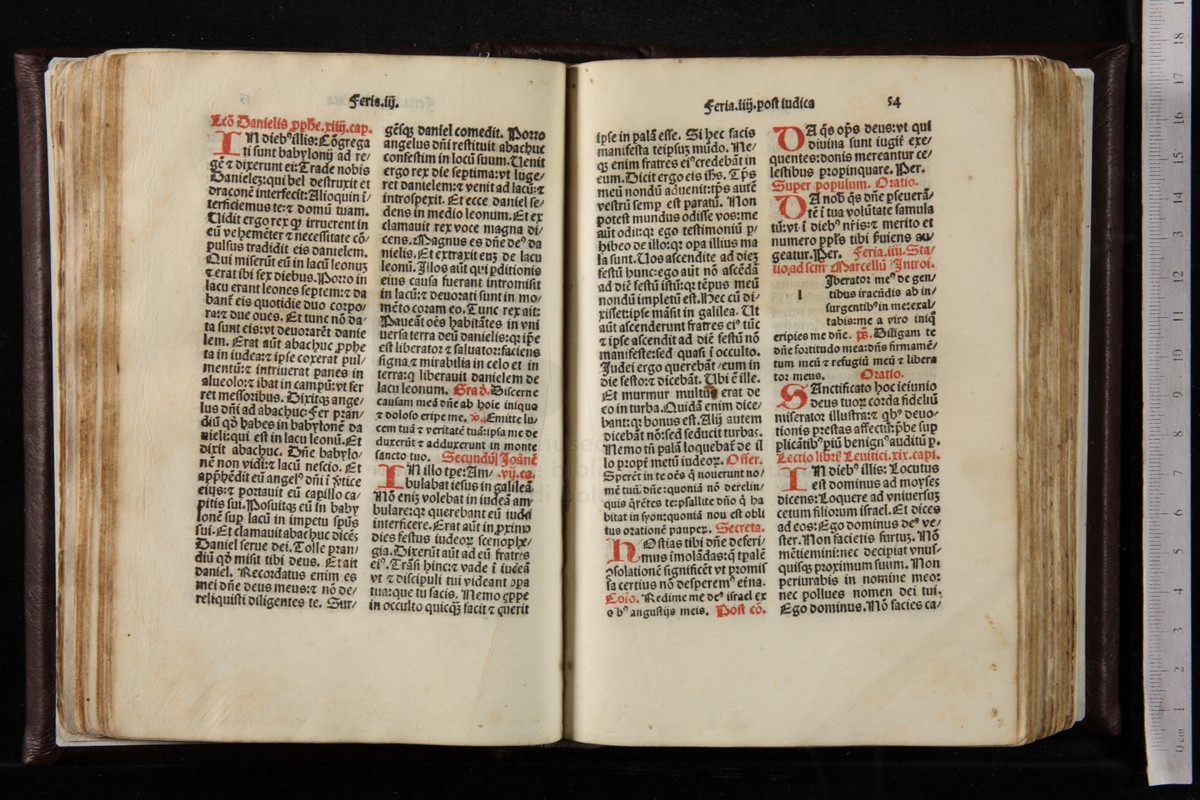 Feria.iij.
Lcõ Danielis ꝓphe.xiiij.cap.
IN dieb⁹ illis: Cõgrega
ti sunt babylonij ad re/
gẽ ⁊ dixerunt ei: Trade nobis
Danielez: qui bel destruxit et
draconẽ interfecit: Alioquin ĩ/
terficiemus te: ⁊ domũ tuam.
Uidit ergo rex ꝙ irruerent in
eũ vehemẽter ⁊ necessitate cõ/
pulsus tradidit eis danielem.
Qui miserũt eũ in lacũ leonuz
⁊ erat ibi sex diebus. Porro in
lacu erant leones septem: ⁊ da
banť eis quotidie duo corpo/
ra: ⁊ due oues. Et tunc nõ da/
ta sunt eis: vt deuorarẽt danie
lem. Erat aũt abachuc ꝓphe
ta in iudea: ⁊ ipse coxerat pul/
mentũ: ⁊ intriuerat panes in
alueolo: ⁊ ibat in campũ: vt fer
ret messoribus. Dixitqꝫ ange/
lus dñi ad abachuc: Fer pran/
diũ qď habes in babylonẽ da
nieli: qui est in lacu leonũ. Et
dixit abachuc. Dñe babylo/
nẽ non vidi: ⁊ lacũ nescio. Et
apphẽdit eũ angel⁹ dñi ĩ ꝟtice
eius: ⁊ portauit eũ capillo ca/
pitis sui. Posuitqꝫ eũ in baby
lonẽ sup lacũ in impetu spũs
sui. Et clamauit abachuc dicẽs
Daniel serue dei. Tolle pran/
diũ qď misit tibi deus. Et ait
daniel. Recordatus enim es
mei dñe deus meus: ⁊ nõ de/
reliquisti diligentes te. Sur/
gẽsqꝫ daniel comedit. Porro
angelus dñi restituit abachuc
confestim in locũ suum. Uenit
ergo rex die septima: vt luge/
ret danielem: ⁊ venit ad lacũ: ⁊
introspexit. Et ecce daniel se/
dens in medio leonum. Et ex
clamauit rex voce magna di/
cens. Magnus es dñe de⁹ da
nielis. Et extraxit euz de lacu
leonũ. Illos aũt qui ꝑditionis
eius causa fuerant intromisit
in lacũ: ⁊ deuorati sunt in mo/
mẽto coram eo. Tunc rex ait:
Paueãt oẽs habitãtes in vni
uersa terra deũ danielis: qꝛ ip̃e
est liberator ⁊ saluator: faciens
signa ⁊ mirabilia in celo et in
terra: q̃ liberauit danielem de
lacu leonum. Graď. Discerne
causam meã dñe ab hoĩe iniquo
⁊ doloso eripe me. ℣. Emitte lu/
cem tuã ⁊ veritatẽ tuã: ipsa me de
duxerũt ⁊ adduxerunt in monte
sancto tuo. Secundũ Joãnẽ
IN illo tp̃e: Am/ .vij.ca.
bulabat iesus in galileã
Nõ eniz volebat in iudeã am/
bulare: qꝛ querebant eũ iudei
interficere. Erat aũt in ꝓximo
dies festus iudeoꝝ scenophe/
gia. Dixerũt aũt ad eũ fratres
ei⁹. Trãsi hinc: ⁊ vade ĩ iudeã
vt ⁊ discipuli tui videant oꝑa
tua: que tu facis. Nemo q̃ppe
in occulto quicqꝫ facit ⁊ querit
Feria.iiij. post iudica 54
ipse in palã esse. Si hec facis
manifesta teipsuz mũdo. Ne/
qꝫ enim fratres ei⁹ credebãt in
eum. Dicit ergo eis iħs. Tp̃s
meũ nondũ aduenit: tp̃s autẽ
vestrũ semꝑ est paratũ. Non
potest mundus odisse vos: me
aũt odit: qꝛ ego testimoniũ ꝑ/
hibeo de illo: qꝛ opa illius ma
la sunt. Uos ascendite ad diez
festũ hunc: ego aũt nõ ascẽdã
ad diẽ festũ istũ: qꝛ tẽpus meũ
nondũ impletũ est. Hec cũ di/
xisset: ipse mãsit in galilea. Ut
aũt ascenderunt fratres ei⁹ tũc
⁊ ipse ascendit ad diẽ festũ nõ
manifeste: sed quasi ĩ occulto.
Judei ergo querebãt eum in
die festo: ⁊ dicebãt. Ubi ẽ ille.
Et murmur multũ erat de
eo in turba. Quidã enim dice/
bant: qꝛ bonus est. Alij autem
dicebãt nõ: sed seducit turbas.
Nemo tñ palã loquebať de il
lo propť metũ iudeoꝝ. Offer.
Sperẽt in te oẽs q̃ nouerunt no/
mẽ tuũ dñe: quoniã nõ derelin/
quis q̃rẽtes te: psallite dño q̃ ha
bitat in syon: quoniã non est obli
tus orationẽ pauꝑeꝝ. Secreta.
HOstias tibi dñe deferi/
mus imolãdas: q̃ tꝑalẽ
ꝯsolationẽ significẽt vt promis
sa certius nõ desperem⁹ eterna.
Cõio. Redime me de⁹ israel ex
oĩb⁹ angustijs meis. Post cõ.
DA q̃s op̃s deus: vt qui
diuina sunt iugiť exe/
quentes: donis mereantur ce/
lestibus propinquare. Per.
Super populum. Oratio.
DA nob̃ q̃s dñe ꝑseuerã/
tẽ ĩ tua volũtate famula
tũ: vt ĩ dieb⁹ nr̃is: ⁊ merito et
numero ppl̃s tibi ẜuiens au/
geatur. Per. Feria.iiij. Sta/
tio. ad scm̃ Marcellũ Introi.
lIberator me⁹ de gen/
tibus iracũdis ab in/
surgentib⁹ in me: exal/
tabis: me a viro iniq̃
eripies me dñe. p̃s. Diligam te
dñe fortitudo mea: dñs firmamẽ/
tum meũ ⁊ refugiũ meũ ⁊ libera
tor meus. Oratio.
SAnctificato hoc ieiunio
deus tuoꝝ corda fideliũ
miserator illustra: ⁊ qb⁹ deuo/
tionis prestas affectũ: p̃be sup
plicãtib⁹ piũ benign⁹ auditũ ꝑ.
Lectio libri Leuitici.xix.capi.
IN dieb⁹ illis: Locutus
est dominus ad moysen
dicens: Loquere ad vniuersuz
cetum filiorum israel. Et dices
ad eos: Ego dominus de⁹ ve/
ster. Non facietis furtuz. Nõ
mẽtiemini: nec decipiat vnus/
quisqꝫ proximum suum. Non
periurabis in nomine meo:
nec pollues nomen dei tui.
Ego dominus. Nõ facies ca/